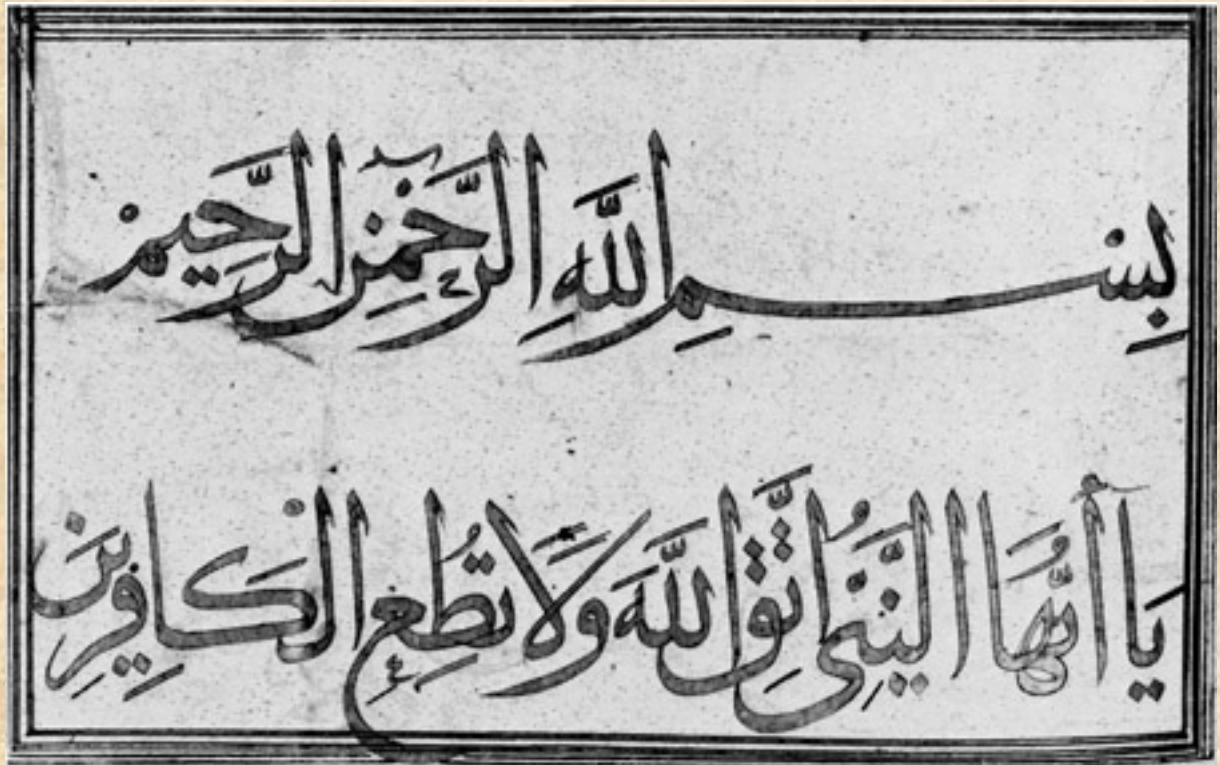 بِسْمِ اللَّهِ الرَّحْمٰنِ الرَّحِيمِ
يَا أَيُّهَا النَّبِيُّ اتَّقِ اللَّهَ وَلَا تُطِعِ الْكَافِرِينَ